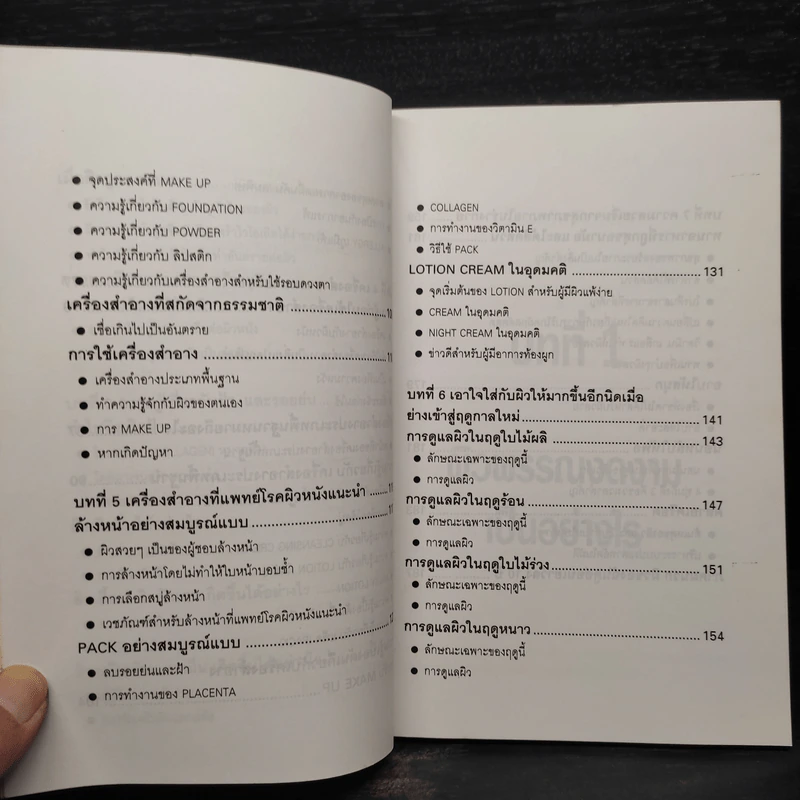 ● จุดประสงค์ที่ MAKE UP
● ความรู้เกี่ยวกับ FOUNDATION
● ความรู้เกี่ยวกับ POWDER
● ความรู้เกี่ยวกับ ลิปสติก
● ความรู้เกี่ยวกับเครื่องสำอางสำหรับใช้รอบดวงตา
เครื่องสำอางที่สกัดจากธรรมชาติ
● เชื่อเกินไปเป็นอันตราย
การใช้เครื่องสำอาง
● เครื่องสำอางประเภทพื้นฐาน
● ทำความรู้จักกับผิวของตนเอง
● การ MAKE UP
● หากเกิดปัญหา
บทที่ 5 เครื่องสำอางที่แพทย์โรคผิวหนังแนะนำ
ล้างหน้าอย่างสมบูรณ์แบบ
● ผิวสวยๆ เป็นของผู้ชอบล้างหน้า
● การล้างหน้าโดยไม่ทำให้ใบหน้าบอบช้ำ
● การเลือกสบู่ล้างหน้า
● เวชภัณฑ์สำหรับล้างหน้าที่แพทย์โรคผิวหนังแนะนำ
PACK อย่างสมบูรณ์แบบ
● ลบรอยย่นและฝ้า
● การทำงานของ PLACENTA
● COLLAGEN
● การทำงานของวิตามิน E
● วิธีใช้ PACK
LOTION CREAM ในอุดมคติ 131
● จุดเริ่มต้นของ LOTION สำหรับผู้มีผิวแพ้ง่าย
● CREAM ในอุดมคติ
● NIGHT CREAM ในอุดมคติ
● ข่าวดีสำหรับผู้มีอาการท้องผูก
บทที่ 6 เอาใจใส่กับผิวให้มากขึ้นอีกนิดเมื่อ
ย่างเข้าสู่ฤดูกาลใหม่ 141
การดูแลผิวในฤดูใบไม้ผลิ 143
● ลักษณะเฉพาะของฤดูนี้
● การดูแลผิว
การดูแลผิวในฤดูร้อน 147
● ลักษณะเฉพาะของฤดูนี้
● การดูแลผิว
การดูแลผิวในฤดูใบไม้ร่วง 151
● ลักษณะเฉพาะของฤดูนี้
● การดูแลผิว
การดูแลผิวในฤดูหนาว 154
● ลักษณะเฉพาะของฤดูนี้
● การดูแลผิว